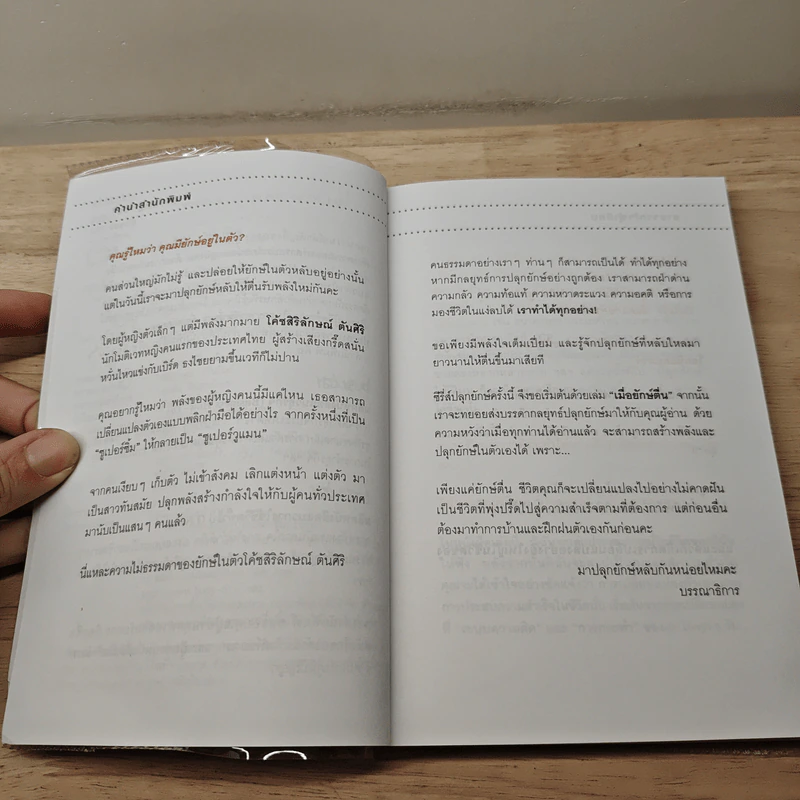 คำนำสำนักพิมพ์
คุณรู้ไหมว่า คุณมียักษ์อยู่ในตัว?
คนส่วนใหญ่มักไม่รู้ และปล่อยให้ยักษ์ในตัวหลับอยู่อย่างนั้น
แต่ในวันนี้เราจะมาปลุกยักษ์หลับให้ตื่นรับพลังใหม่กันคะ
โดยผู้หญิงตัวเล็กๆ แต่มีพลังมากมาย โค้ชสิริลักษณ์ ตันศิริ
นักโมติเวทหญิงคนแรกของประเทศไทย ผู้สร้างเสียงกรี๊ดสนั่น
หวั่นไหวแข่งกับเบิร์ด ธงไชยยามขึ้นเวทีก็ไม่ปาน
คุณอยากรู้ไหมว่า พลังของผู้หญิงคนนี้มีแค่ไหน เธอสามารถ
เปลี่ยนแปลงตัวเองแบบพลิกฝ่ามือได้อย่างไร จากครั้งหนึ่งที่เป็น
“ซูเปอร์ซึ้ม” ให้กลายเป็น “ซูเปอร์วูแมน”
จากคนเงียบๆ เก็บตัว ไม่เข้าสังคม เลิกแต่งหน้า แต่งตัว มา
เป็นสาวทันสมัย ปลุกพลังสร้างกำลังใจให้กับผู้คนทั่วประเทศ
มานับเป็นแสนๆ คนแล้ว
นี่แหละความไม่ธรรมดาของยักษ์ในตัวโค้ชสิริลักษณ์ ตันศิริ
คนธรรมดาอย่างเราๆ ท่านๆ ก็สามารถเป็นได้ ทำได้ทุกอย่าง
หากมีกลยุทธ์การปลุกยักษ์อย่างถูกต้อง เราสามารถฝ่าด่าน
ความกลัว ความท้อแท้ ความหวาดระแวง ความอคติ หรือการ
มองชีวิตในแง่ลบได้ เราทำได้ทุกอย่าง!
ขอเพียงมีพลังใจเต็มเปี่ยม และรู้จักปลุกยักษ์ที่หลับใหลมา
ยาวนานให้ตื่นขึ้นมาเสียที
ซีรี่ส์ปลุกยักษ์ครั้งนี้ จึงขอเริ่มต้นด้วยเล่ม “เมื่อยักษ์ตื่น” จากนั้น
เราจะทยอยส่งบรรดากลยุทธ์ปลุกยักษ์มาให้กับคุณผู้อ่าน ด้วย
ความหวังว่าเมื่อทุกท่านได้อ่านแล้ว จะสามารถสร้างพลังและ
ปลุกยักษ์ในตัวเองได้ เพราะ...
เพียงแค่ยักษ์ตื่น ชีวิตคุณก็จะเปลี่ยนแปลงไปอย่างไม่คาดฝัน
เป็นชีวิตที่พุ่งปรี๊ดไปสู่ความสำเร็จตามที่ต้องการ แต่ก่อนอื่น
ต้องมาทำการบ้านและฝึกฝนตัวเองกันก่อนคะ
มาปลุกยักษ์หลับกันหน่อยไหมคะ
บรรณาธิการ